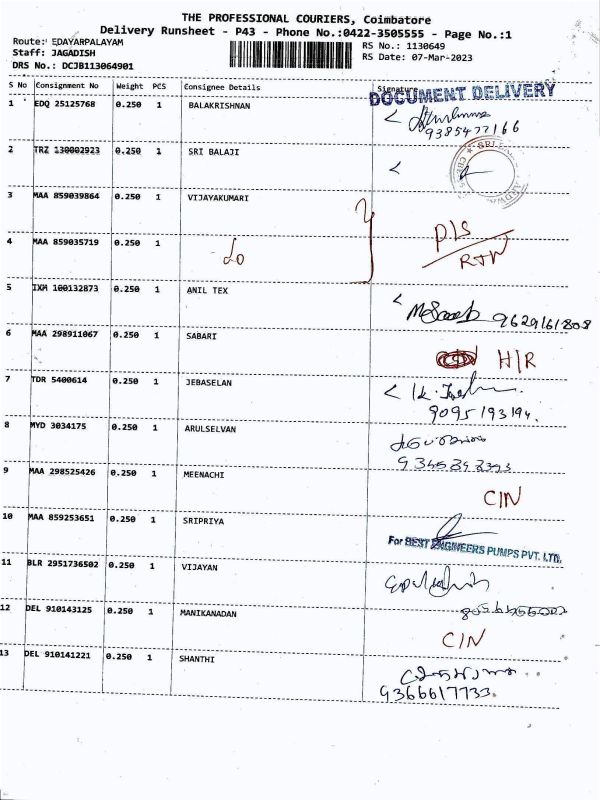 THE PROFESSIONAL COURIERS, Coimbatore
Delivery Runsheet - P43 - Phone No.:0422-3505555 - Page No.:1
Route: EDAYARPALAYAM
Staff: JAGADISH
DRS No.: DCJB113064901
RS No.: 1130649
RS Date: 07-Mar-2023
S No Consignment No Weight PCS Consignee Details Signature
DOCUMENT DELIVERY
1 EDQ 25125768 0.250 1 BALAKRISHNAN
9385477166
2 TRZ 130002923 0.250 1 SRI BALAJI
3 MAA 859039864 0.250 1 VIJAYAKUMARI
D/S
4 MAA 859035719 0.250 1
RTN
5 IXM 100132873 0.250 1 ANIL TEX
9629161808
6 MAA 298911067 0.250 1 SABARI
H/R
7 TDR 5400614 0.250 1 JEBASELAN
9095193194.
8 MYD 3034175 0.250 1 ARULSELVAN
9 MAA 298525426 0.250 1 MEENACHI
C/N
10 MAA 859253651 0.250 1 SRIPRIYA
For BEST ENGINEERS PUMPS PVT. LTD.
11 BLR 2951736502 0.250 1 VIJAYAN
12 DEL 910143125 0.250 1 MANIKANADAN
C/N
13 DEL 910141221 0.250 1 SHANTHI
9366617733.